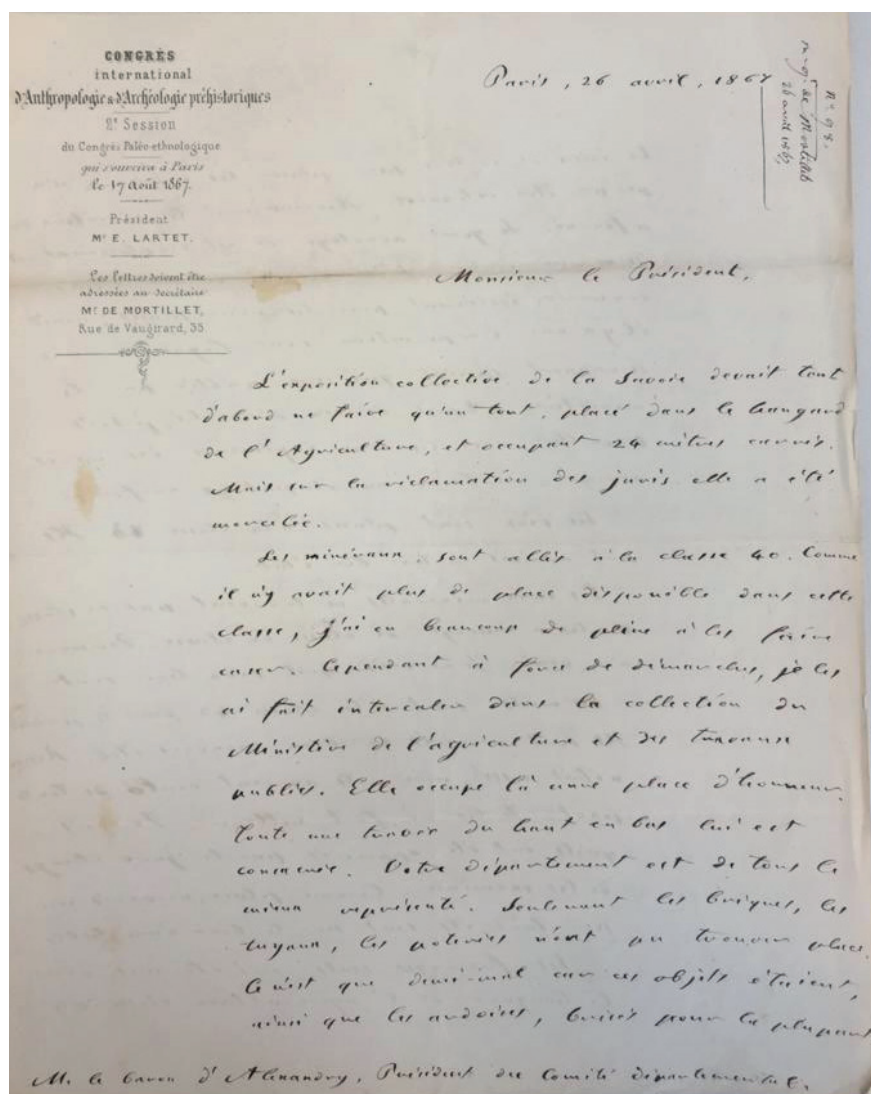 CONGRÈS
international
d'Anthropologie & d'Archéologie préhistoriques
2e Session
du Congrès Paléo-ethnologique
qui s'ouvrira à Paris
le 17 Août 1867.
Président
Mr E. LARTET.
Les lettres doivent être
adressées au Secrétaire
Mr DE MORTILLET,
Rue de Vaugirard, 35
Paris, 26 avril, 1867
No 98.
m. g. de Mortillet
26 avril 1867
Monsieur le Président,
L'exposition collective de la Savoie devait tout
d'abord ne faire qu'un tout, placé dans le hangard
de l'Agriculture, et occupant 24 mètres carrés.
Mais sur la réclamation des jurés elle a été
morcelée.
Les minéraux sont allés à la classe 40. Comme
il n'y avait plus de place disponible dans cette
classe, j'ai eu beaucoup de peine à les faire
caser. Cependant à force de démarches, je les
ai fait intercaler dans la collection du
Ministère de l'agriculture et des travaux
publics. Elle occupe là une place d'honneur.
Toute une travée du haut en bas lui est
consacrée. Votre département est de tous le
mieux représenté. Seulement les briques, les
tuyaux, les poteries n'ont pu trouver place.
Ce n'est que demi-mal car ces objets étaient,
ainsi que les ardoises, brisés pour la plupart
M. le baron d'Alexandry, Président du Comité départemental.